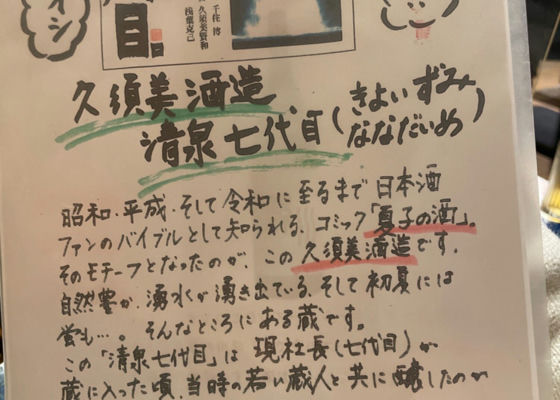 イシ
目。
千住 博
久須美賢和
浅葉克己
久須美酒造
清泉七代目(きよいずみ
ななだいめ)
昭和・平成・そして令和に至るまで日本酒
ファンのバイブルとして知られる、コミック「夏子の酒」。
そのモチーフとなったのが、この久須美酒造です。
自然豊か、湧水が湧き出ている、そして初夏には
蛍も…。そんなところにある蔵です。
この「清泉七代目」は 現社長(七代目)が
蔵に入った頃、当時の若い蔵人と共に醸したのが